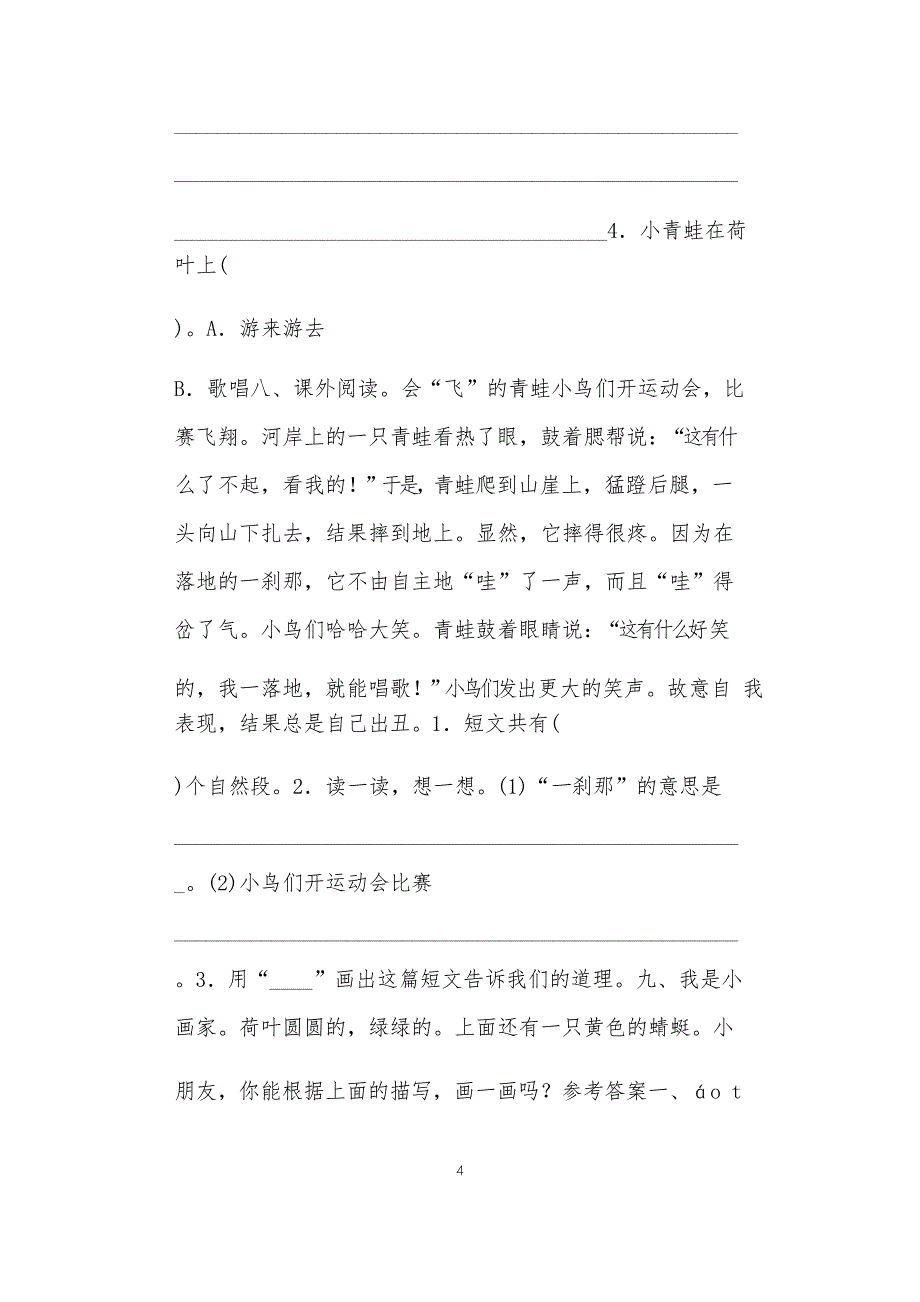 ______________________________________________________
______________________________________________________
_________________________________________4．小青蛙在荷
叶上(
)。A．游来游去
B．歌唱八、课外阅读。会“飞”的青蛙小鸟们开运动会，比
赛飞翔。河岸上的一只青蛙看热了眼，鼓着腮帮说：“这有什
么了不起，看我的！”于是，青蛙爬到山崖上，猛蹬后腿，一
头向山下扎去，结果摔到地上。显然，它摔得很疼。因为在
落地的一刹那，它不由自主地“哇”了一声，而且“哇”得
岔了气。小鸟们哈哈大笑。青蛙鼓着眼睛说：“这有什么好笑
的，我一落地，就能唱歌！”小鸟们发出更大的笑声。故意自 我
表现，结果总是自己出丑。1．短文共有(
)个自然段。2．读一读，想一想。(1)“一刹那”的意思是
______________________________________________________
_。(2)小鸟们开运动会比赛
______________________________________________________
。3．用“____”画出这篇短文告诉我们的道理。九、我是小
画家。荷叶圆圆的，绿绿的。上面还有一只黄色的蜻蜓。小
朋友，你能根据上面的描写，画一画吗？参考答案一、áo t
4